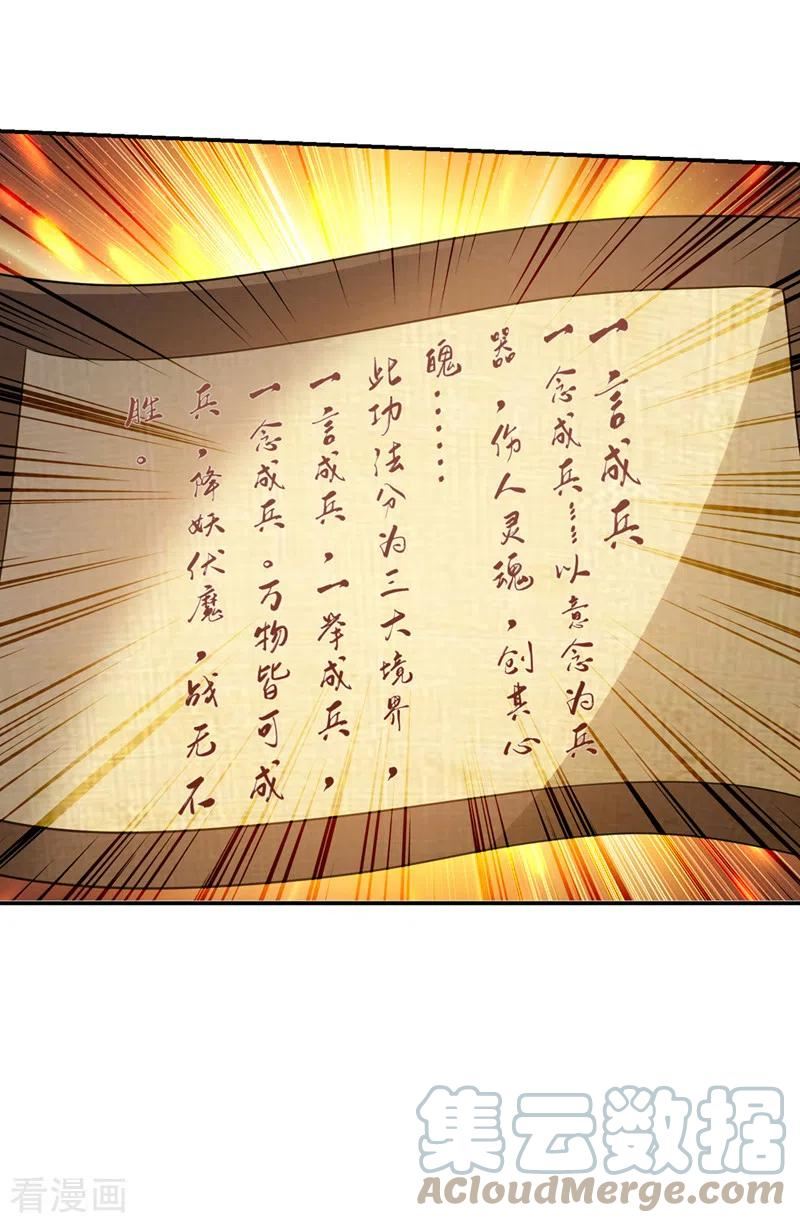 一言成兵
一念成兵……以意念为兵
器，伤人灵魂，创其心
魄……
此功法分为三大境界，
一言成兵，一举成兵，
一念成兵。万物皆可成
兵，降妖伏魔，战无不
胜。
集云数据
AcloudMerge.com
看漫画